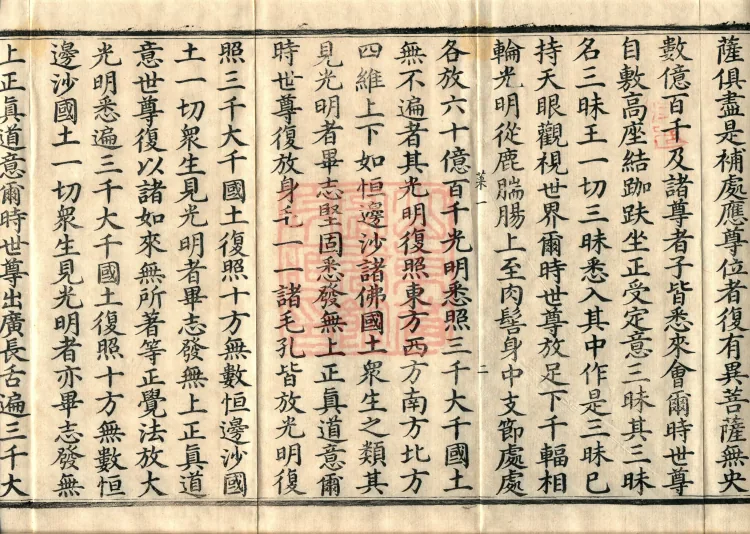 薩俱盡是補處應尊位者復有異菩薩無央
數億百千及諸尊者子皆悉來會爾時世尊
自敷高座結跏趺坐正受定意三昧其三昧
名三昧王一切三昧悉入其中作是三昧已
持天眼觀視世界爾時世尊放足下千輻相
輪光明從鹿腨腸上至肉髻身中支節處處
菜一 二
各放六十億百千光明悉照三千大千國土
無不遍者其光明復照東方西方南方北方
四維上下如恒邊沙諸佛國土衆生之類其
見光明者畢志堅固悉發無上正真道意爾
時世尊復放身毛一一諸毛孔皆放光明復
照三千大千國土復照十方無數恒邊沙國
土一切衆生見光明者畢志發無上正真道
意世尊復以諸如來無所著等正覺法放大
光明悉遍三千大千國土復照十方無數恒
邊沙國土一切衆生見光明者亦畢志發無
上正真道意爾時世尊出廣長舌遍三千大